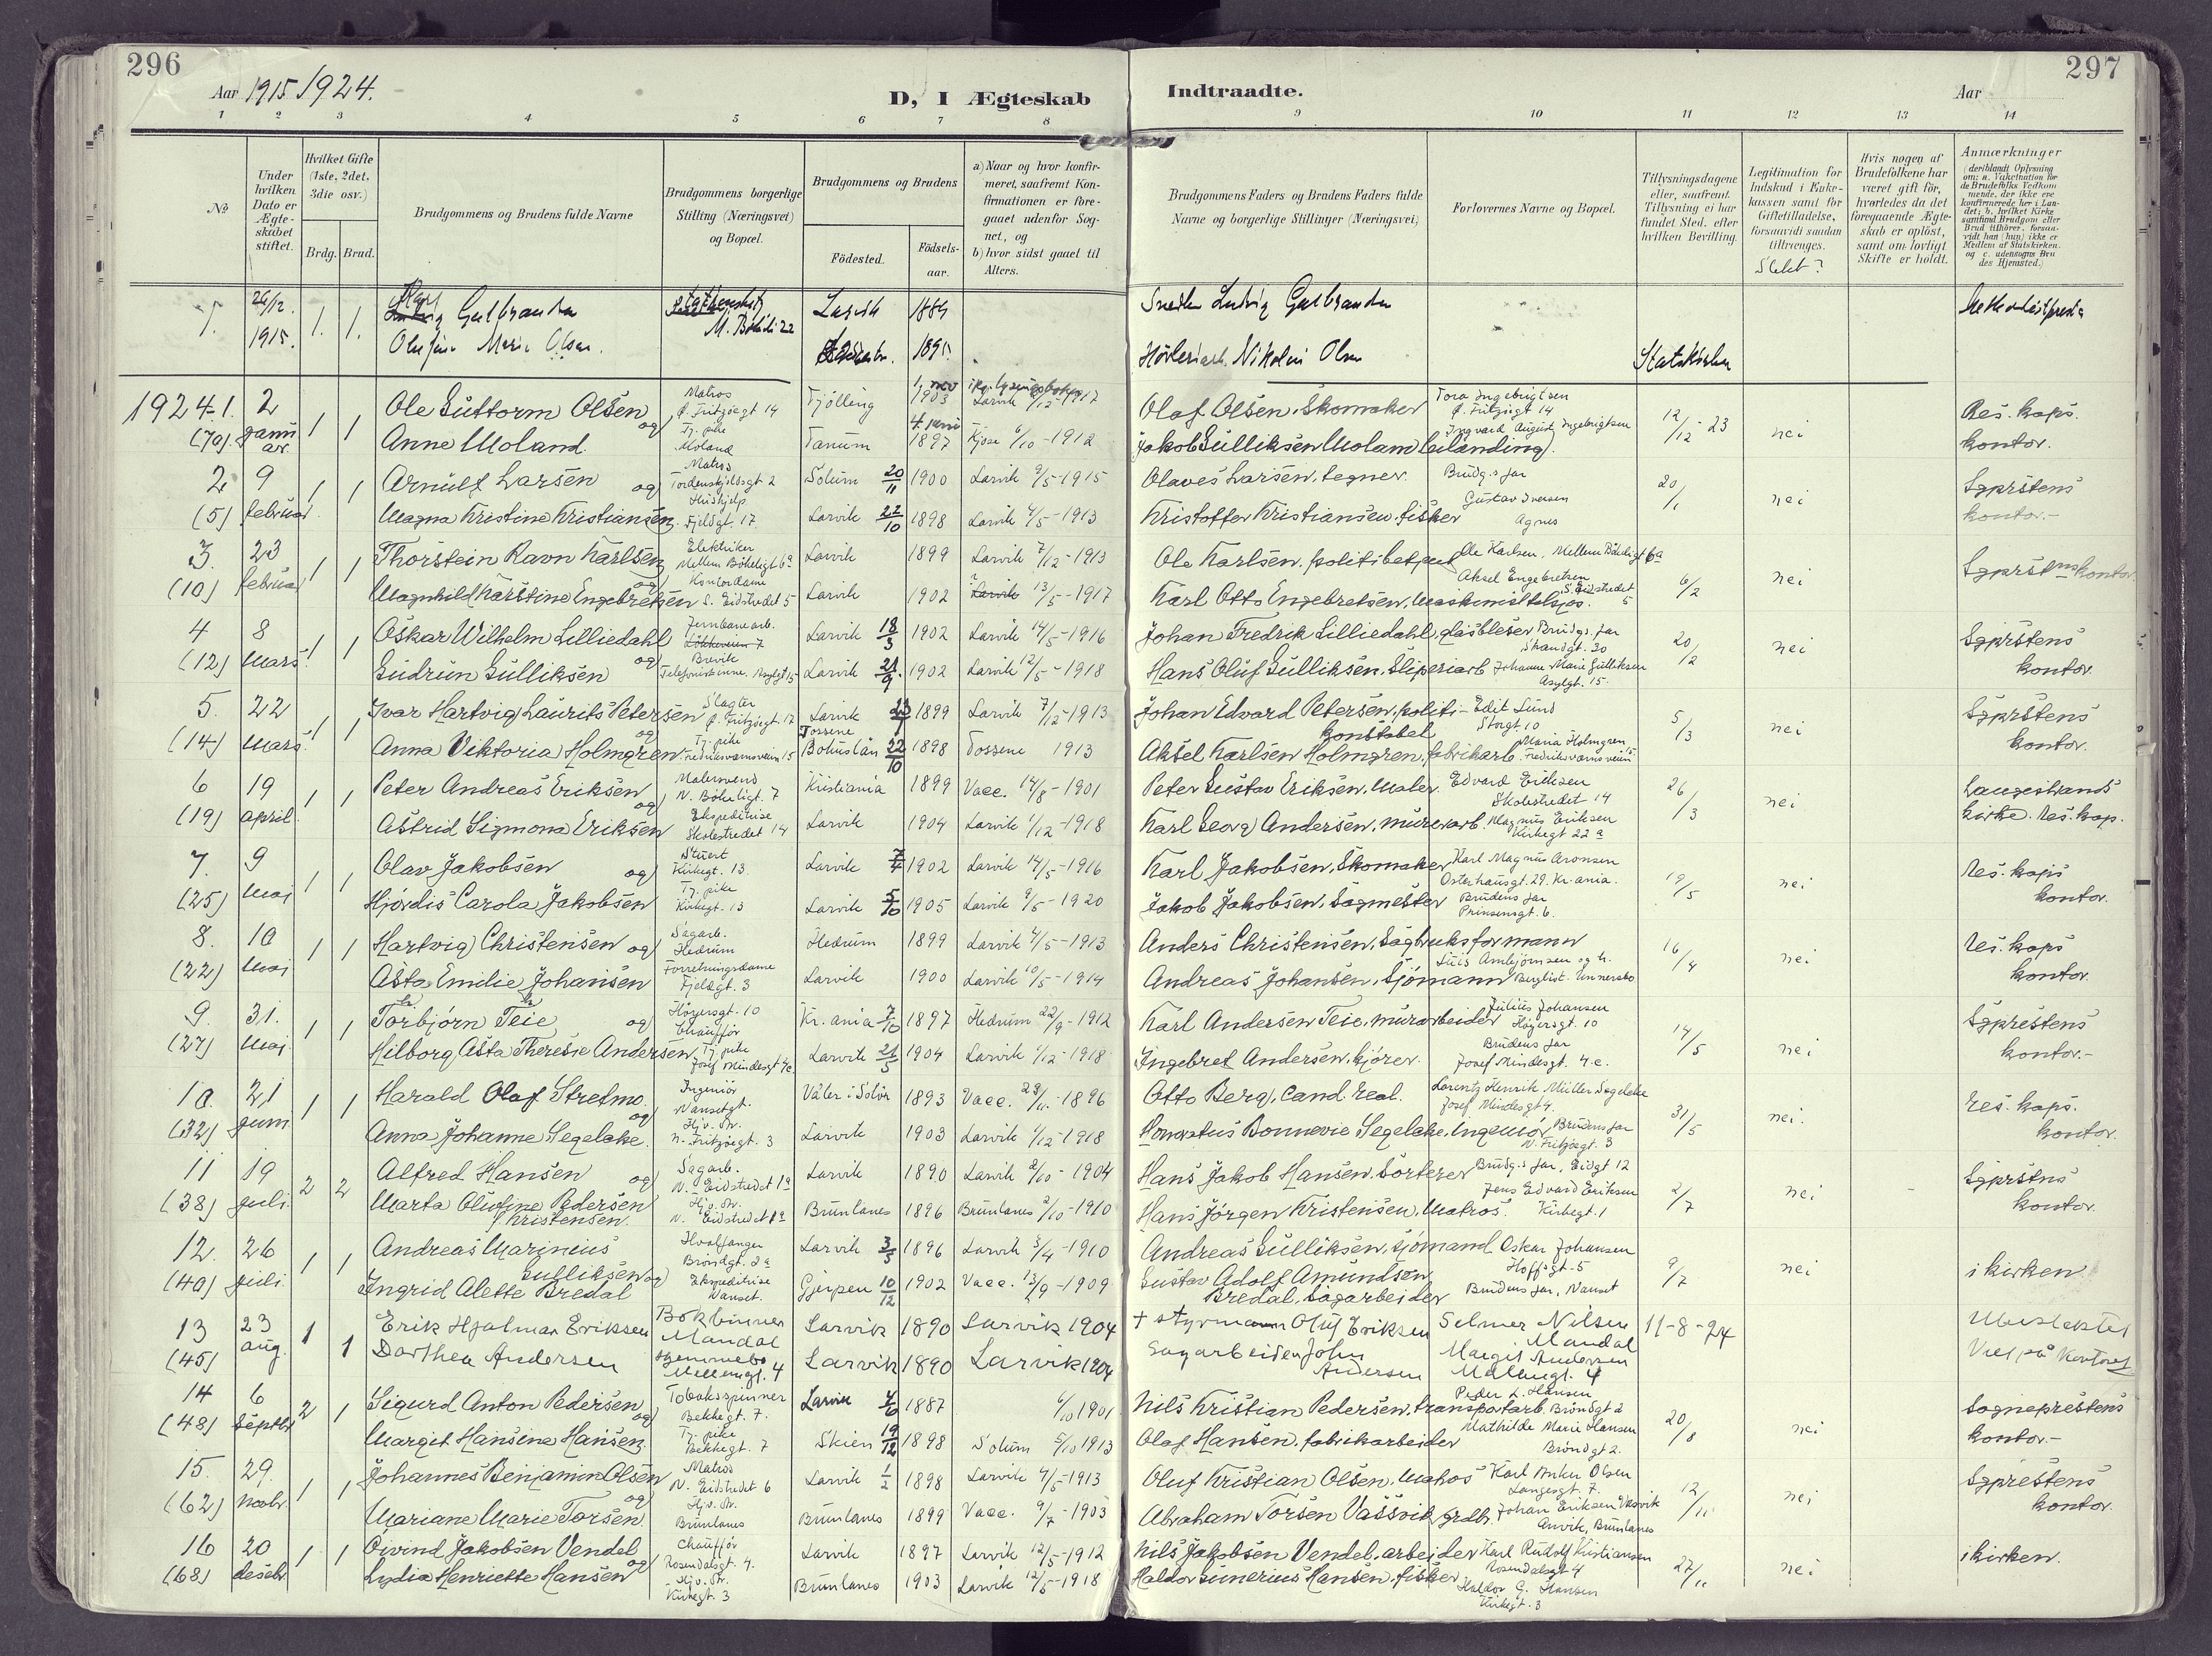 296
297
Aar 1915/1924.
D, I Ægteskab
Indtraadte.
Aar
1 2 3 4 5 6 7 8 9 10 11 12 13 14
No
Under hvilken Dato er Ægteskabet stiftet.
Hvilket Gifte (1ste, 2det, 3die osv.)
Brdg. Brud.
Brudgommens og Brudens fulde Navne
Brudgommens borgerlige Stilling (Næringsvei) og Bopæl.
Brudgommens og Brudens
Födested.
Födsels-aar.
a) Naar og hvor konfirmeret, saafremt Konfirmationen er foregaaet udenfor Sognet, og
b) hvor sidst gaaet til Alters.
Brudgommens Faders og Brudens Faders fulde Navne og borgerlige Stillinger (Næringsvei)
Forlovernes Navne og Bopæl.
Tillysningsdagene eller, saafremt Tillysning ei har fundet Sted, efter hvilken Bevilling.
Legitimation for Indskud i Enkekassen samt for Giftetilladelse, forsaavidt saadan tiltrænges.
Slekt?
Hvis nogen af Brudefolkene har været gift för, hvorledes da det foregaaende Ægteskab er oplöst, samt om lovligt Skifte er holdt.
Anmærkninger
(deriblandt Oplysning om: a. Vakcination för de Brudefolks Vedkommende, der ikke ere konfirmerede her i Landet; b. hvilket Kirke samfund Brudgom eller Brud tilhörer, forsaavidt han (hun) ikke er Medlem af Statskirken, og c. udensogns Brudes Hjemsted.)
1. 26/12 1915. 1. 1. Karl Gulbrandsen M. Bökeli 22 Larvik 1889 Snedker Ludvig Gulbrandsen
Olefine Marie Olsen. 1891. Nikolai Olsen Statskirken
1924 1. 2 1 1 Ole Guttorm Olsen og Matros Ø. Fritzöegt 14 Tjölling 1 nov 1903 Larvik /12-1917 Olaf Olsen, Skomaker Tora Ingebrigtsen Ø. Fritzögt 14 12/12-23 nei Res. kaps.
(70) januar Anne Moland Tj. pike Moland Tanum 4 juni 1897 Kjose 6/10-1912 Jakob Gulliksen Moland (leilending) Ingvard August Ingebrigtsen kontor.
2 9 1 1 Arnulf Larsen og Matros Tordenskjoldsgt 2 Solum 20/11 1900 Larvik 9/5-1915 Olaves Larsen, tegner. Brudg.s far 20/1 nei Sgprstens
(5) februar Magna Kristine Kristiansen. Hushjelp Fjeldgt. 17 Larvik 22/10 1898 Larvik 4/5-1913 Kristoffer Kristiansen, fisker Gustav Iversen Agnes kontor.-
3. 23 1 1 Thorstein Ravn Karlsen og Elektriker Mellem Bökeligt 6a Larvik 1899 Larvik 7/12-1913 Ole Karlsen, politibetjent Ole Karlsen, Mellem Bökeligt 6a 6/2 nei Sgprstenskontor.
(10) februar Magnhild Karstine Engebretsen Kontordame S. Eidstredet 5 Larvik 1902 Larvik 13/5-1917 Karl Otto Engebretsen, Aksel Engebretsen S. Eidstredet 5
4 8 1 1 Oskar Wilhelm Lilliedahl og Jernbanearb. Brevik Larvik 18/3 1902 Larvik 14/5-1916 Johan Fredrik Lilliedahl, glasbleser Brudgs. far Skandgt. 20 20/2 nei Sgprstens
(12) mars Gudrun Gulliksen Telefonistinne. Asylgt 15 Larvik 21/9 1902 Larvik 12/5-1918 Hans Oluf Gulliksen, Sliperiarb Johanne Marie Gulliksen Asylgt. 15. kontor.
5. 22 1 1 Ivar Hartvig Laurits Petersen og Slagter Ø. Fritzöegt 17 Larvik 1899 Larvik 7/12-1913 Johan Edvard Petersen, politi-konstabel Edit Lund Storgt. 10 5/3 nei Sgprstens
(14) mars Anna Viktoria Holmgren Tj. pike Fredriksvernsveien 15 Tossene Bohuslän 22/10 1898 Tossene 1913 Aksel Karlsen Holmgren, fabrikarb. Maria Holmgren Fredriksvernsveien 15 kontor.
6 19 1 1 Peter Andreas Eriksen og Malersvend N. Bökeligt. 7 Kristiania 1899 Vacc. 14/8-1901 Peter Gustav Eriksen, Maler. Edvard Eriksen Skolestredet 14 26/3 nei Langestrands
(19) april. Astrid Sigmona Eriksen Ekspeditrise Skolestredet 14 Larvik 1904 Larvik 1/12-1918 Karl Georg Andersen, murerarb. Magnus Eriksen Kirkegt 22a kirke. res. kap.
7. 9 1 1 Olav Jakobsen og Stuert Kirkegt. 13 Larvik 7/4 1902 Larvik 14/5-1916 Karl Jakobsen, Skomaker Karl Magnus Aronsen Osterhausgt. 29. Kr.ania. 19/5 nei Res. kaps
(25) mai Hjördis Carola Jakobsen Tj. pike Kirkegt. 13 Larvik 5/10 1905 Larvik 9/5-1920 Jakob Jakobsen, Sagmester Brudens far Prinsensgt. 6. kontor.
8. 10 1 1 Hartvig Christensen og Sagarb. Hedrum Hedrum 1899 Larvik 4/5-1913 Anders Christensen, Sagbruksformann 16/4 nei res. kaps
(22) mai Asta Emilie Johansen Forretningsdame Fjeldgt. 3 Larvik 1900 Larvik 10/5-1914 Andreas Johansen, Sjömann kontor.
9. 31. 1 1 Torbjörn Teie og Höyersgt. 10 Chauffør Kr.ania 7/10 1897 Hedrum 22/9-1912 Karl Andersen Teie, murarbeider Julius Johansen Höyersgt. 10 14/5 nei Sgprestens
(27) mai. Hilborg Asta Therese Andersen Tj. pike Josef Mindesgt 4c. Larvik 21/5 1904 Larvik 1/12-1918 Ingebret Andersen, kjörer. Brudens far Josef Mindesgt. 4.c. kontor.-
10. 21 1 1 Harald Olaf Stretmo. og Ingeniør Nansetgt. Våler i Solör 1893 Vacc. 23/11-1896 Otto Berg, Cand. real. Lorentz Henrik Müller Segelcke Josef Mindesgt 4. 31/5 nei. res. kaps.
(32) juni Anna Johanne Segelcke. Hj. v. str. N. Fritzöegt. 3 Larvik 1903 Larvik 1/12-1918 Honoratus Bonnevie Segelcke, Ingeniör Brudens far N. Fritzöegt. 3 kontor.
11 19 2 2 Alfred Hansen og Sagarb. N. Eidstredet 1a Larvik 1890 Larvik 2/10-1904 Hans Jakob Hansen, Sorterer Brudg.s far, Eidgt 12 2/7 nei Sgprstns
(38) juli. Marta Olufine Pedersen f. Kristensen. N. Eidstredet 1a Brunlanes 1896 Brunlanes 2/10-1910 Hans Jörgen Kristensen, Matros. Jens Edvard Eriksen Kirkegt. 1 kontor.
12. 26 1 1 Andreas Marinius Gulliksen og Hvalfanger Bröndgt. 2a Larvik 3/5 1896 Larvik 3/4-1910 Andreas Gulliksen, sjömand Oskar Johansen Hoffsgt. 5 9/7 nei i kirken
(40) juli. Ingrid Alette Bredal Ekspeditrise Nanset. Gjerpen 10/12 1902 Vacc. 13/9-1909 Gustav Adolf Amundsen Bredal, Sagarbeider Brudens far, Nanset
13 23 1 1 Erik Hjalmar Eriksen Bokbinner Mandal Larvik 1890 Larvik 1904 + styrmann Oluf Eriksen Selmer Nilsen Mandal 11-8-24
(45) aug. Dorthea Andersen Hjemmeb. Mellemgt. 4 Larvik 1890 Larvik 1904 Sagarbeider John Andersen Margit Andersen Mellemgt. 4 Viet på kontoret
14 6 2 1 Sigurd Anton Pedersen og Tobakspinner Bekkegt. 7. Larvik 1887 6/10 1901 Nils Kristian Pedersen, transportarb. Peder L. Hansen Bröndgt 2 20/8 nei Sogneprestens
(48) septbr Margit Hansine Hansen. Tj. pike Bekkegt. 7 Skien 19/12 1898 Solum 5/10 1913 Olaf Hansen, fabrikarbeider Mathilde Marie Hansen Bröndgt 2. kontor.-
15. 29. 1 1 Johannes Benjamin Olsen og Matros N. Eidstredet 6 Larvik 1/2 1898 Larvik 4/5-1913 Oluf Kristian Olsen, Matros Karl Anker Olsen Langesgt. 7. 12/11 nei Sgprestens
(62) novbr. Mariane Marie Torsen Brunlanes Brunlanes 1899 Vacc. 9/7-1903 Abraham Torsen Vassvik, grdbr. Johan Eriksen Vasvik Anvik, Brunlanes kontor.
16 20 1 1 Öivind Jakobsen Vendel og Chaufför Rosendalsgt. 4. Larvik 1897 Larvik 12/5-1912 Nils Jakobsen Vendel, arbeider Karl Rudolf Kristiansen Rosendalsgt 4 27/11 nei i kirken.
(68) desebr Lydia Henriette Hansen Kirkegt. 3 Brunlanes 1903 Larvik 12/5-1918 Haldor Gunerius Hansen, fisker Haldor G. Hansen Kirkegt. 3